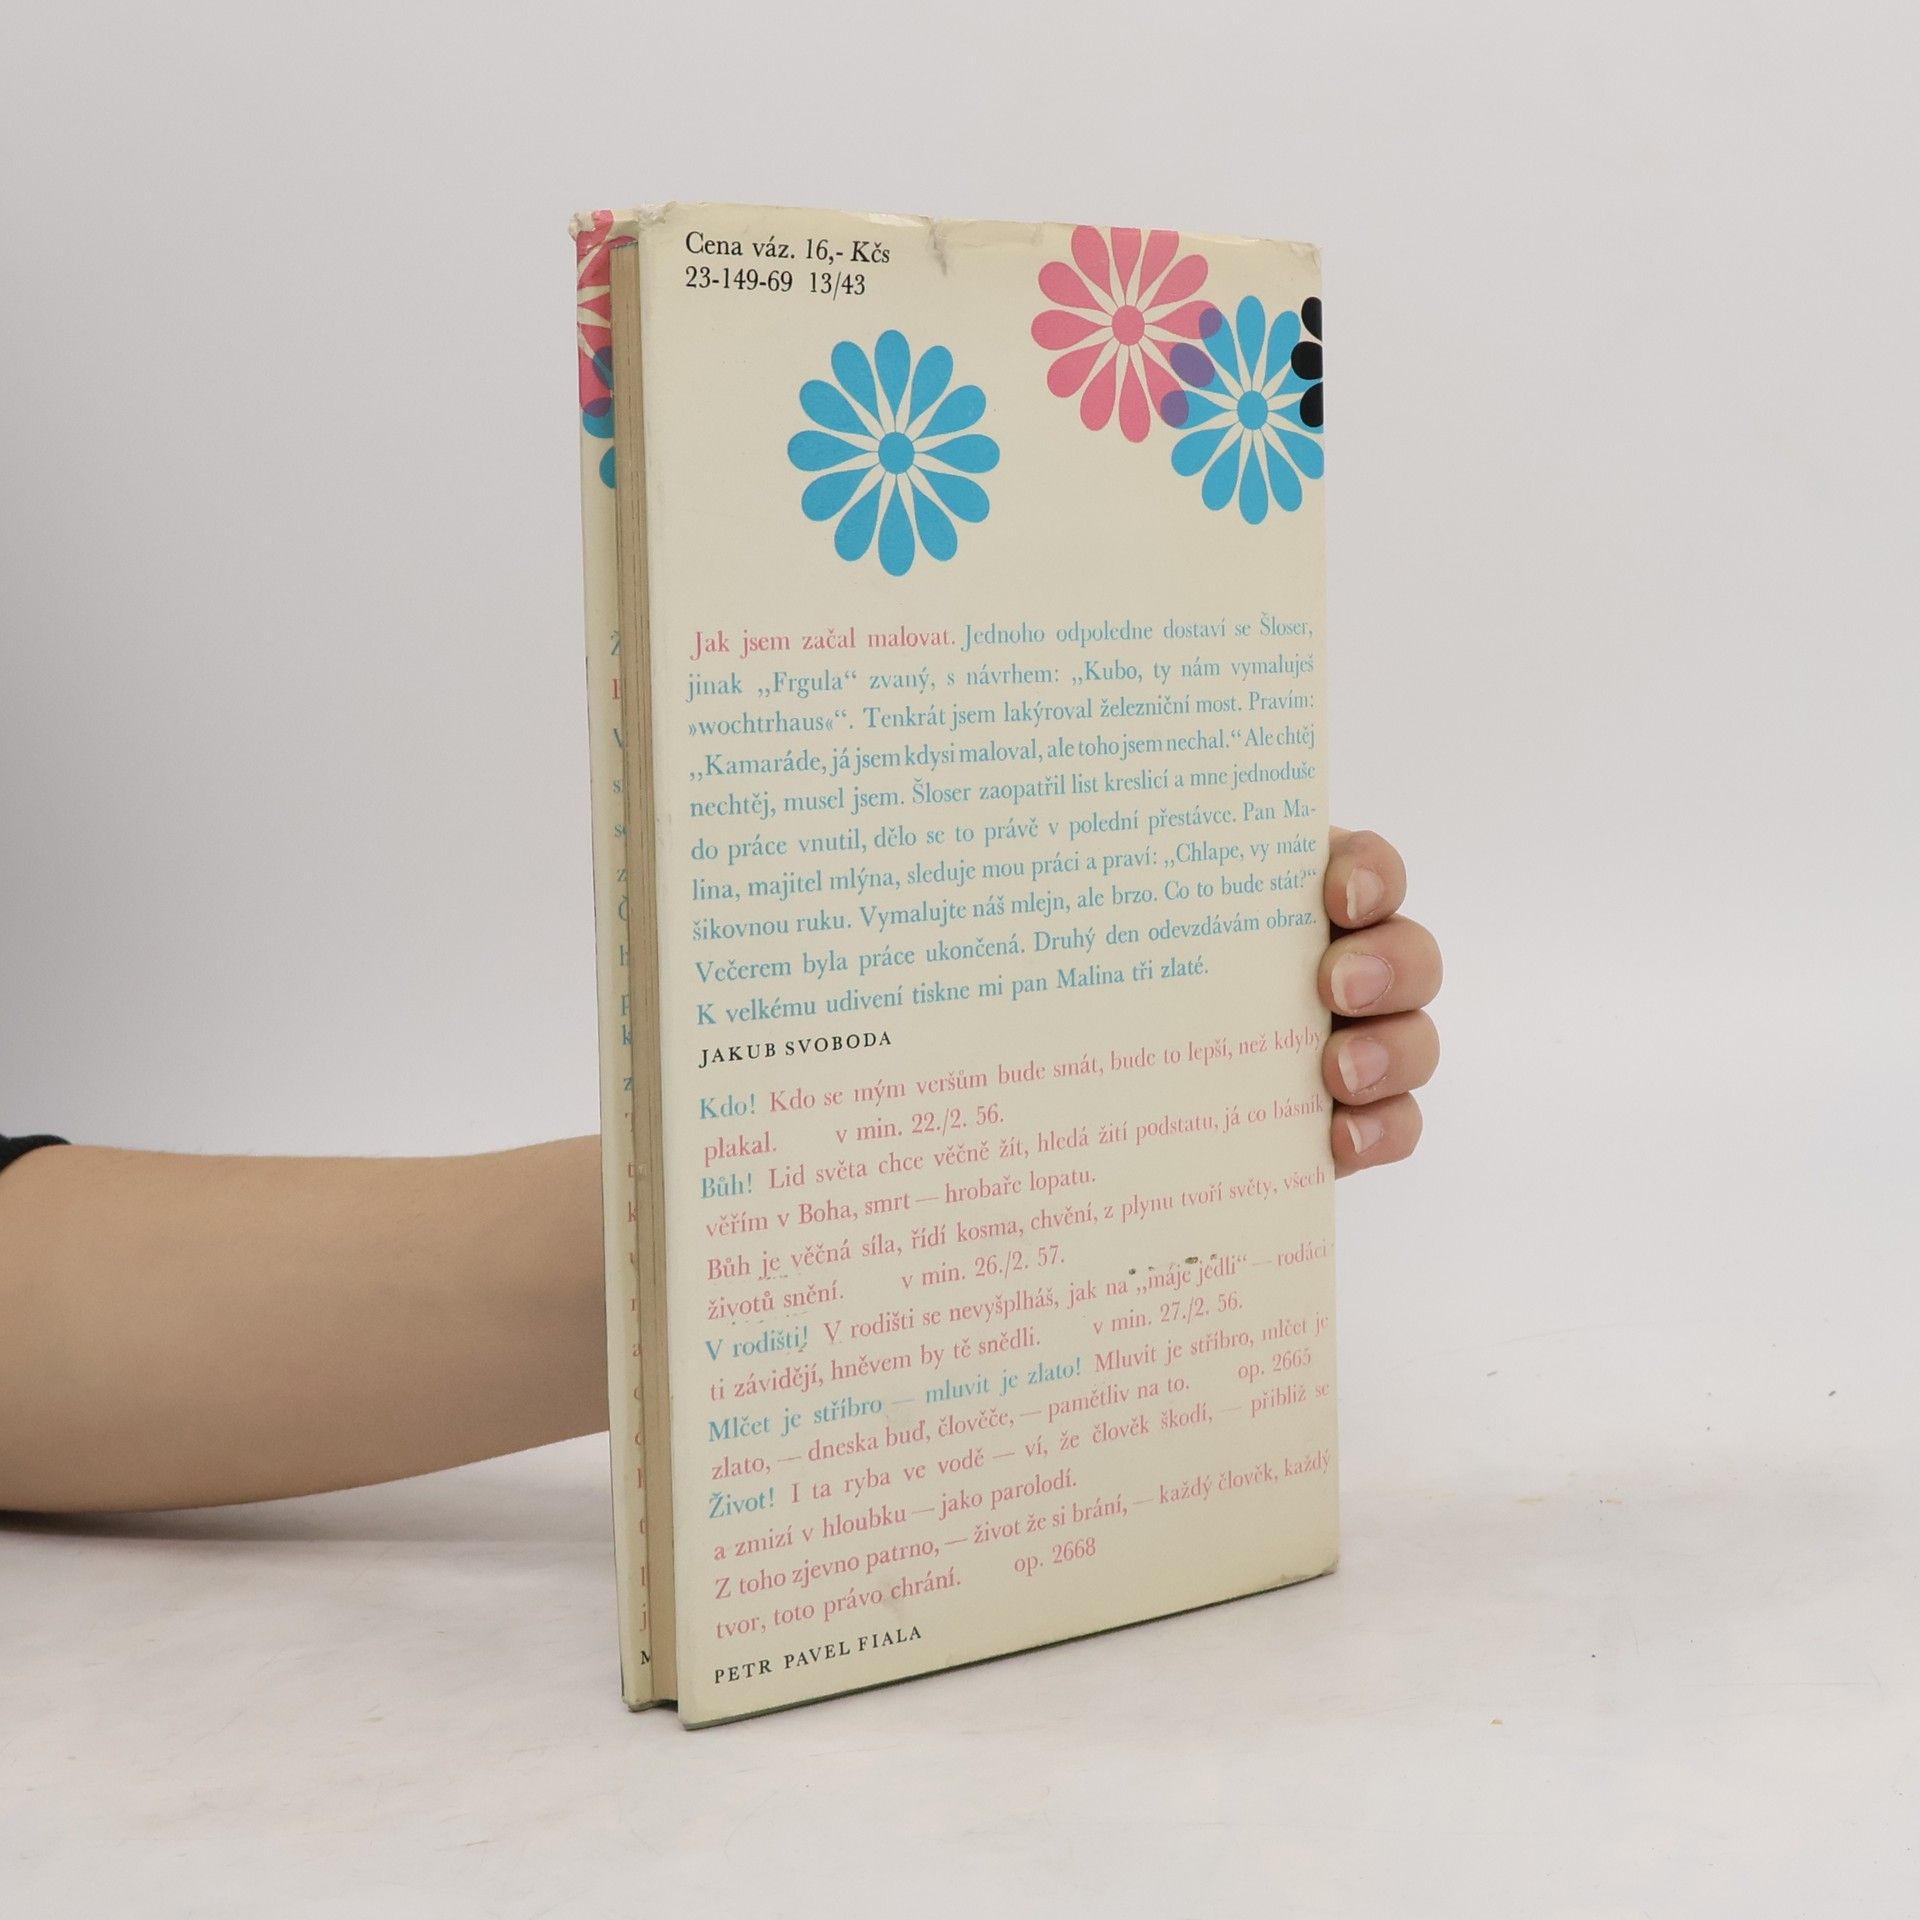 Cena váz. 16,- Kčs
23-149-69 13/43
Jak jsem začal malovat. Jednoho odpoledne dostaví se Šloser,
jinak „Frgula“ zvaný, s návrhem: „Kubo, ty nám vymaluješ
»wochtrhaus«“. Tenkrát jsem lakýroval železniční most. Pravím:
„Kamaráde, já jsem kdysi maloval, ale toho jsem nechal.“ Ale chtěj
nechtěj, musel jsem. Šloser zaopatřil list kreslicí a mne jednoduše
do práce vnutil, dělo se to právě v polední přestávce. Pan Ma-
lina, majitel mlýna, sleduje mou práci a praví: „Chlape, vy máte
šikovnou ruku. Vymalujte náš mlejn, ale brzo. Co to bude stát?“
Večerem byla práce ukončená. Druhý den odevzdávám obraz.
K velkému udivení tiskne mi pan Malina tři zlaté.
JAKUB SVOBODA
Kdo! Kdo se mým veršům bude smát, bude to lepší, než kdyby
plakal. v min. 22./2. 56.
Bůh! Lid světa chce věčně žít, hledá žití podstatu, já co básník
věřím v Boha, smrt — hrobaře lopatu.
Bůh je věčná síla, řídí kosma, chvění, z plynu tvoří světy, všech
životů snění. v min. 26./2. 57.
V rodišti! V rodišti se nevyšplháš, jak na „máje jedli“ — rodáci
ti závidějí, hněvem by tě snědli. v min. 27./2. 56.
Mlčet je stříbro — mluvit je zlato! Mluvit je stříbro, mlčet je
zlato, — dneska buď, člověče, — pamětliv na to. op. 2665
Život! I ta ryba ve vodě — ví, že člověk škodí, — přibliž se
a zmizí v hloubku — jako parolodí.
Z toho zjevno patrno, — život že si brání, — každý člověk, každý
tvor, toto právo chrání. op. 2668
PETR PAVEL FIALA